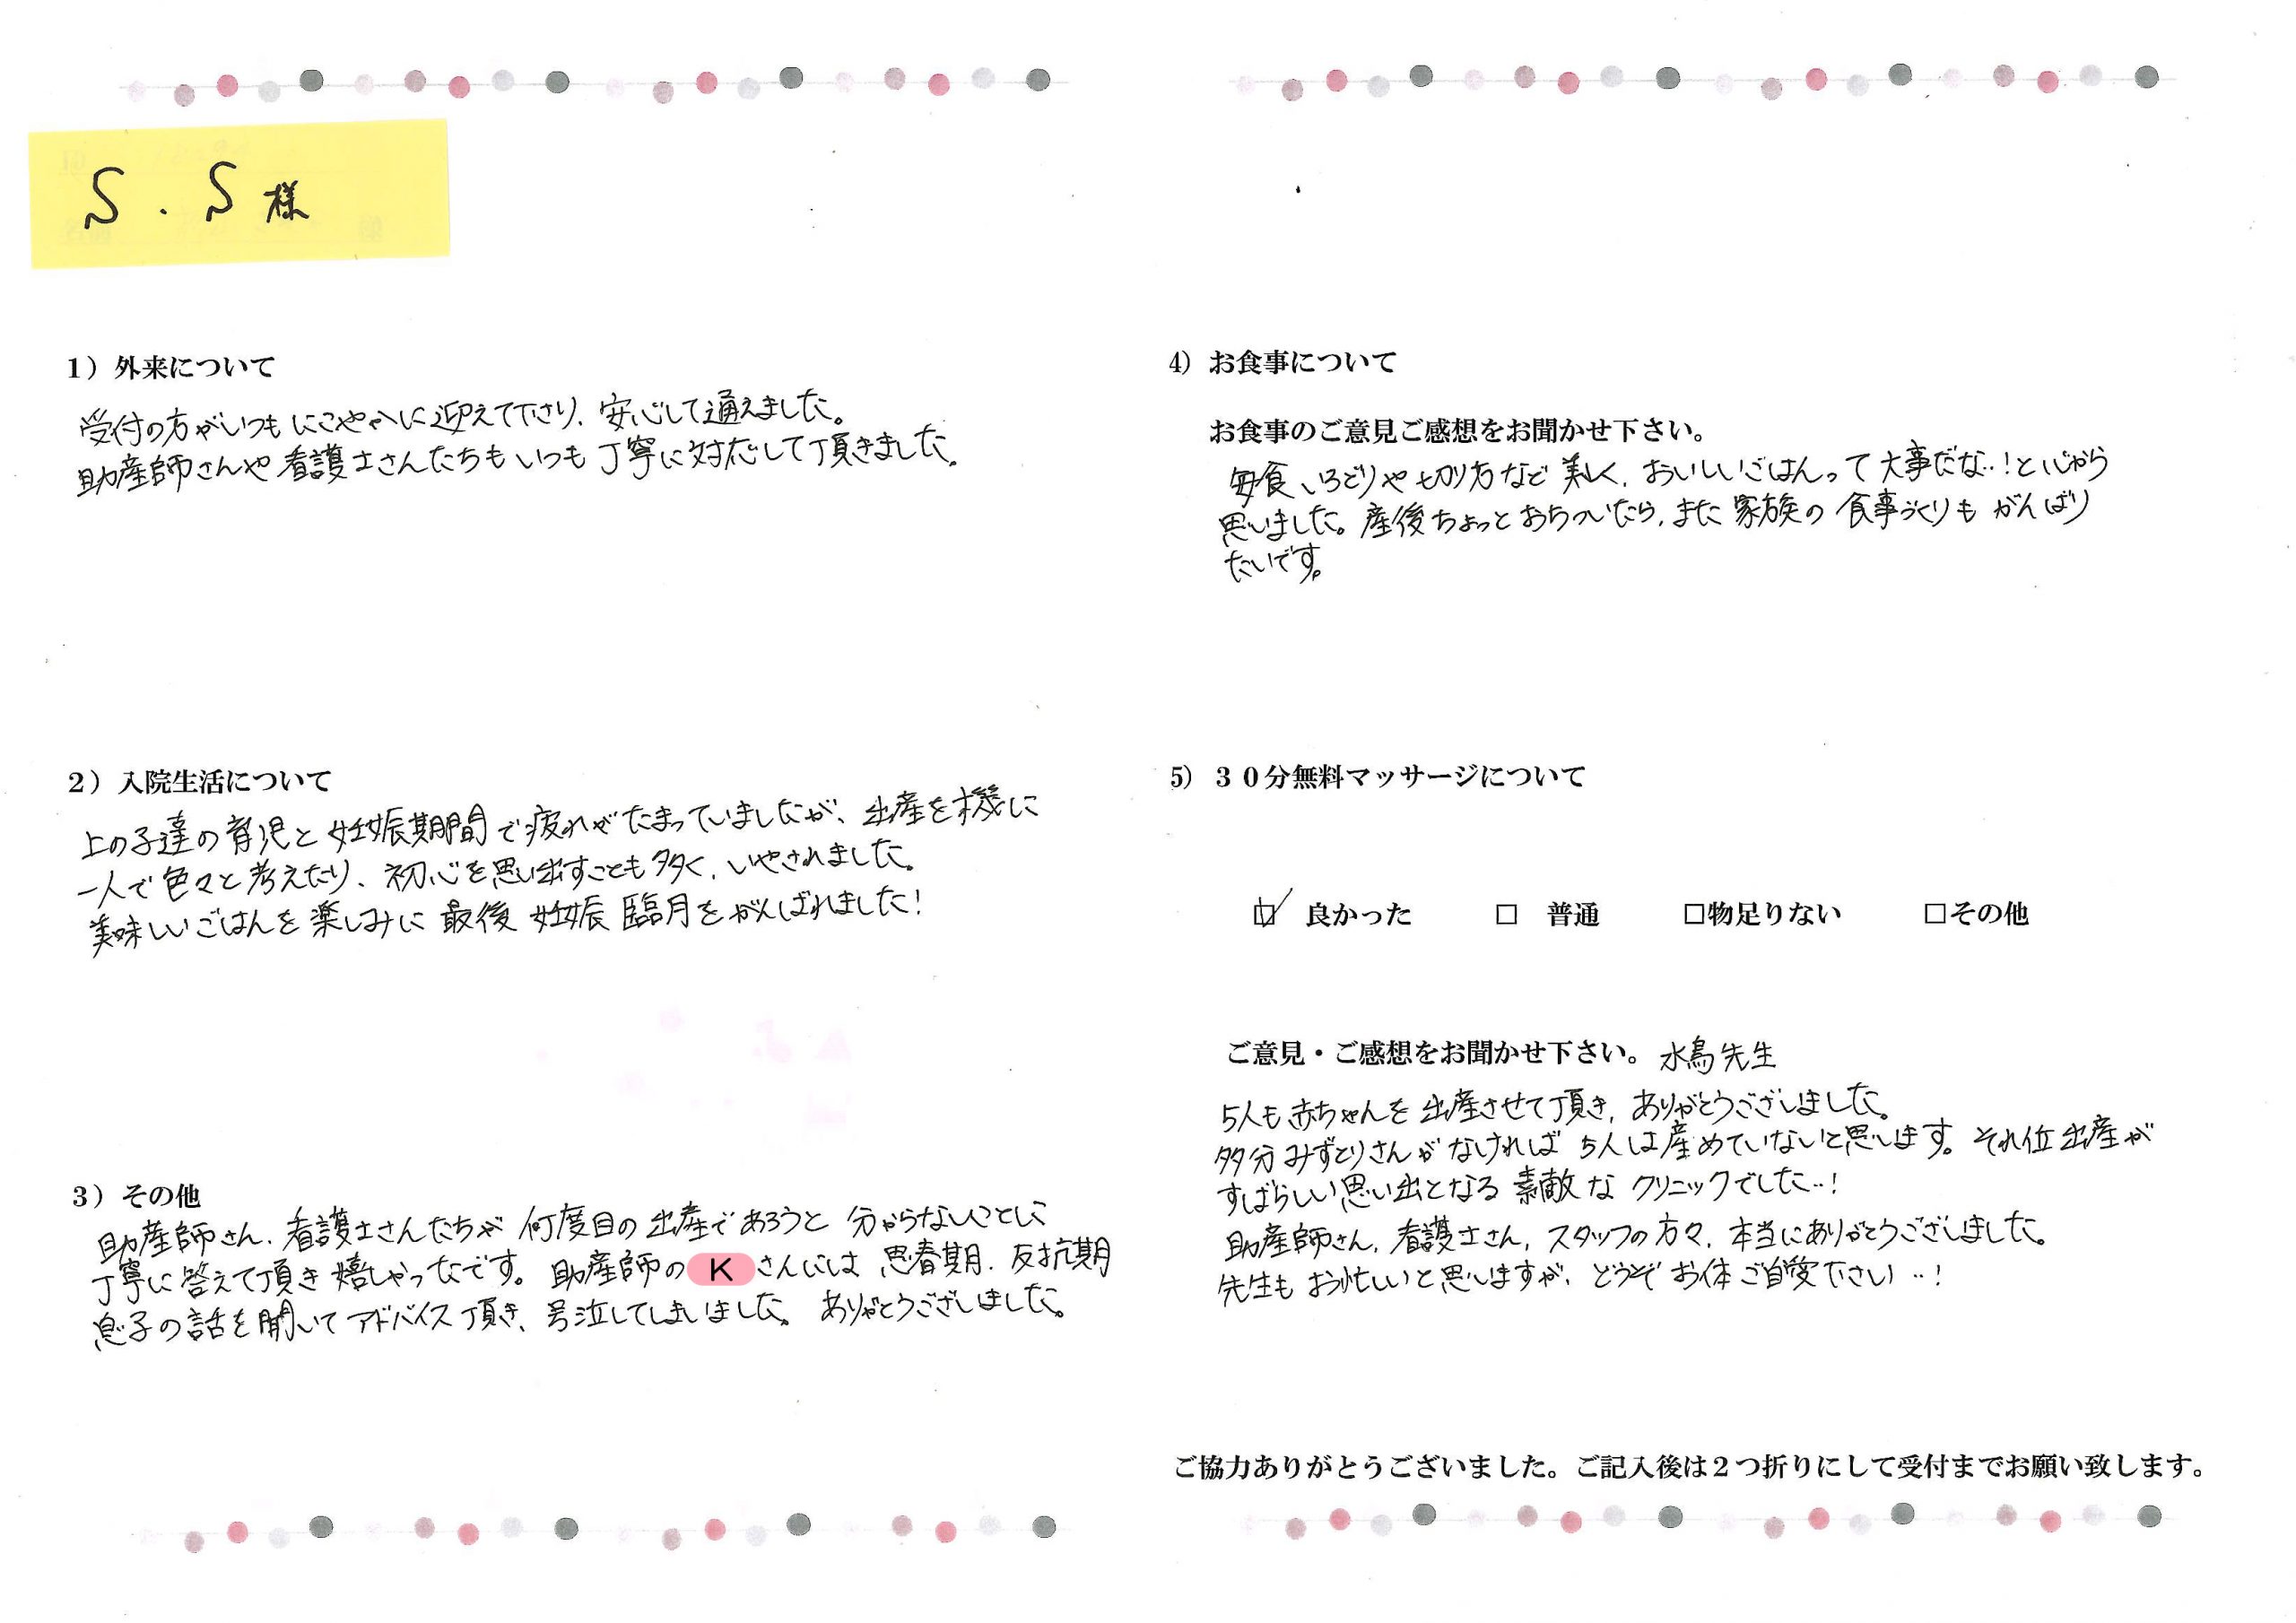 S.S様
1）外来について
受付の方がいつもにこやかに迎えて下さり、安心して通えました。
助産師さんや看護士さんたちもいつも丁寧に対応して頂きました。
2）入院生活について
上の子達の育児と妊娠期間で疲れがたまっていましたが、出産を機に
一人で色々と考えたり、初心を思い出すことも多く、いやされました。
美味しいごはんを楽しみに最後妊娠臨月をがんばれました！
3）その他
助産師さん、看護士さんたちが何度目の出産であろうと分からないことに
丁寧に答えて頂き嬉しかったです。助産師のKさんには思春期、反抗期
息子の話を聞いてアドバイス頂き、号泣してしまいました。ありがとうございました。
4）お食事について
お食事のご意見ご感想をお聞かせ下さい。
毎食いろどりや切り方など美しく、おいしいごはんって大事だな‥！と心から
思いました。産後ちょっとおちついたら、また家族の食事づくりもがんばり
たいです。
5）３０分無料マッサージについて
☑ 良かった □ 普通 □物足りない □その他
ご意見・ご感想をお聞かせ下さい。水鳥先生
5人も赤ちゃんを出産させて頂き、ありがとうございました。
多分みずとりさんがなければ5人は産めていないと思います。それ位出産が
すばらしい思い出となる素敵なクリニックでした‥！
助産師さん、看護士さん、スタッフの方々、本当にありがとうございました。
先生もお忙しいと思いますが、どうぞお体ご自愛下さい‥！
ご協力ありがとうございました。ご記入後は２つ折りにして受付までお願い致します。